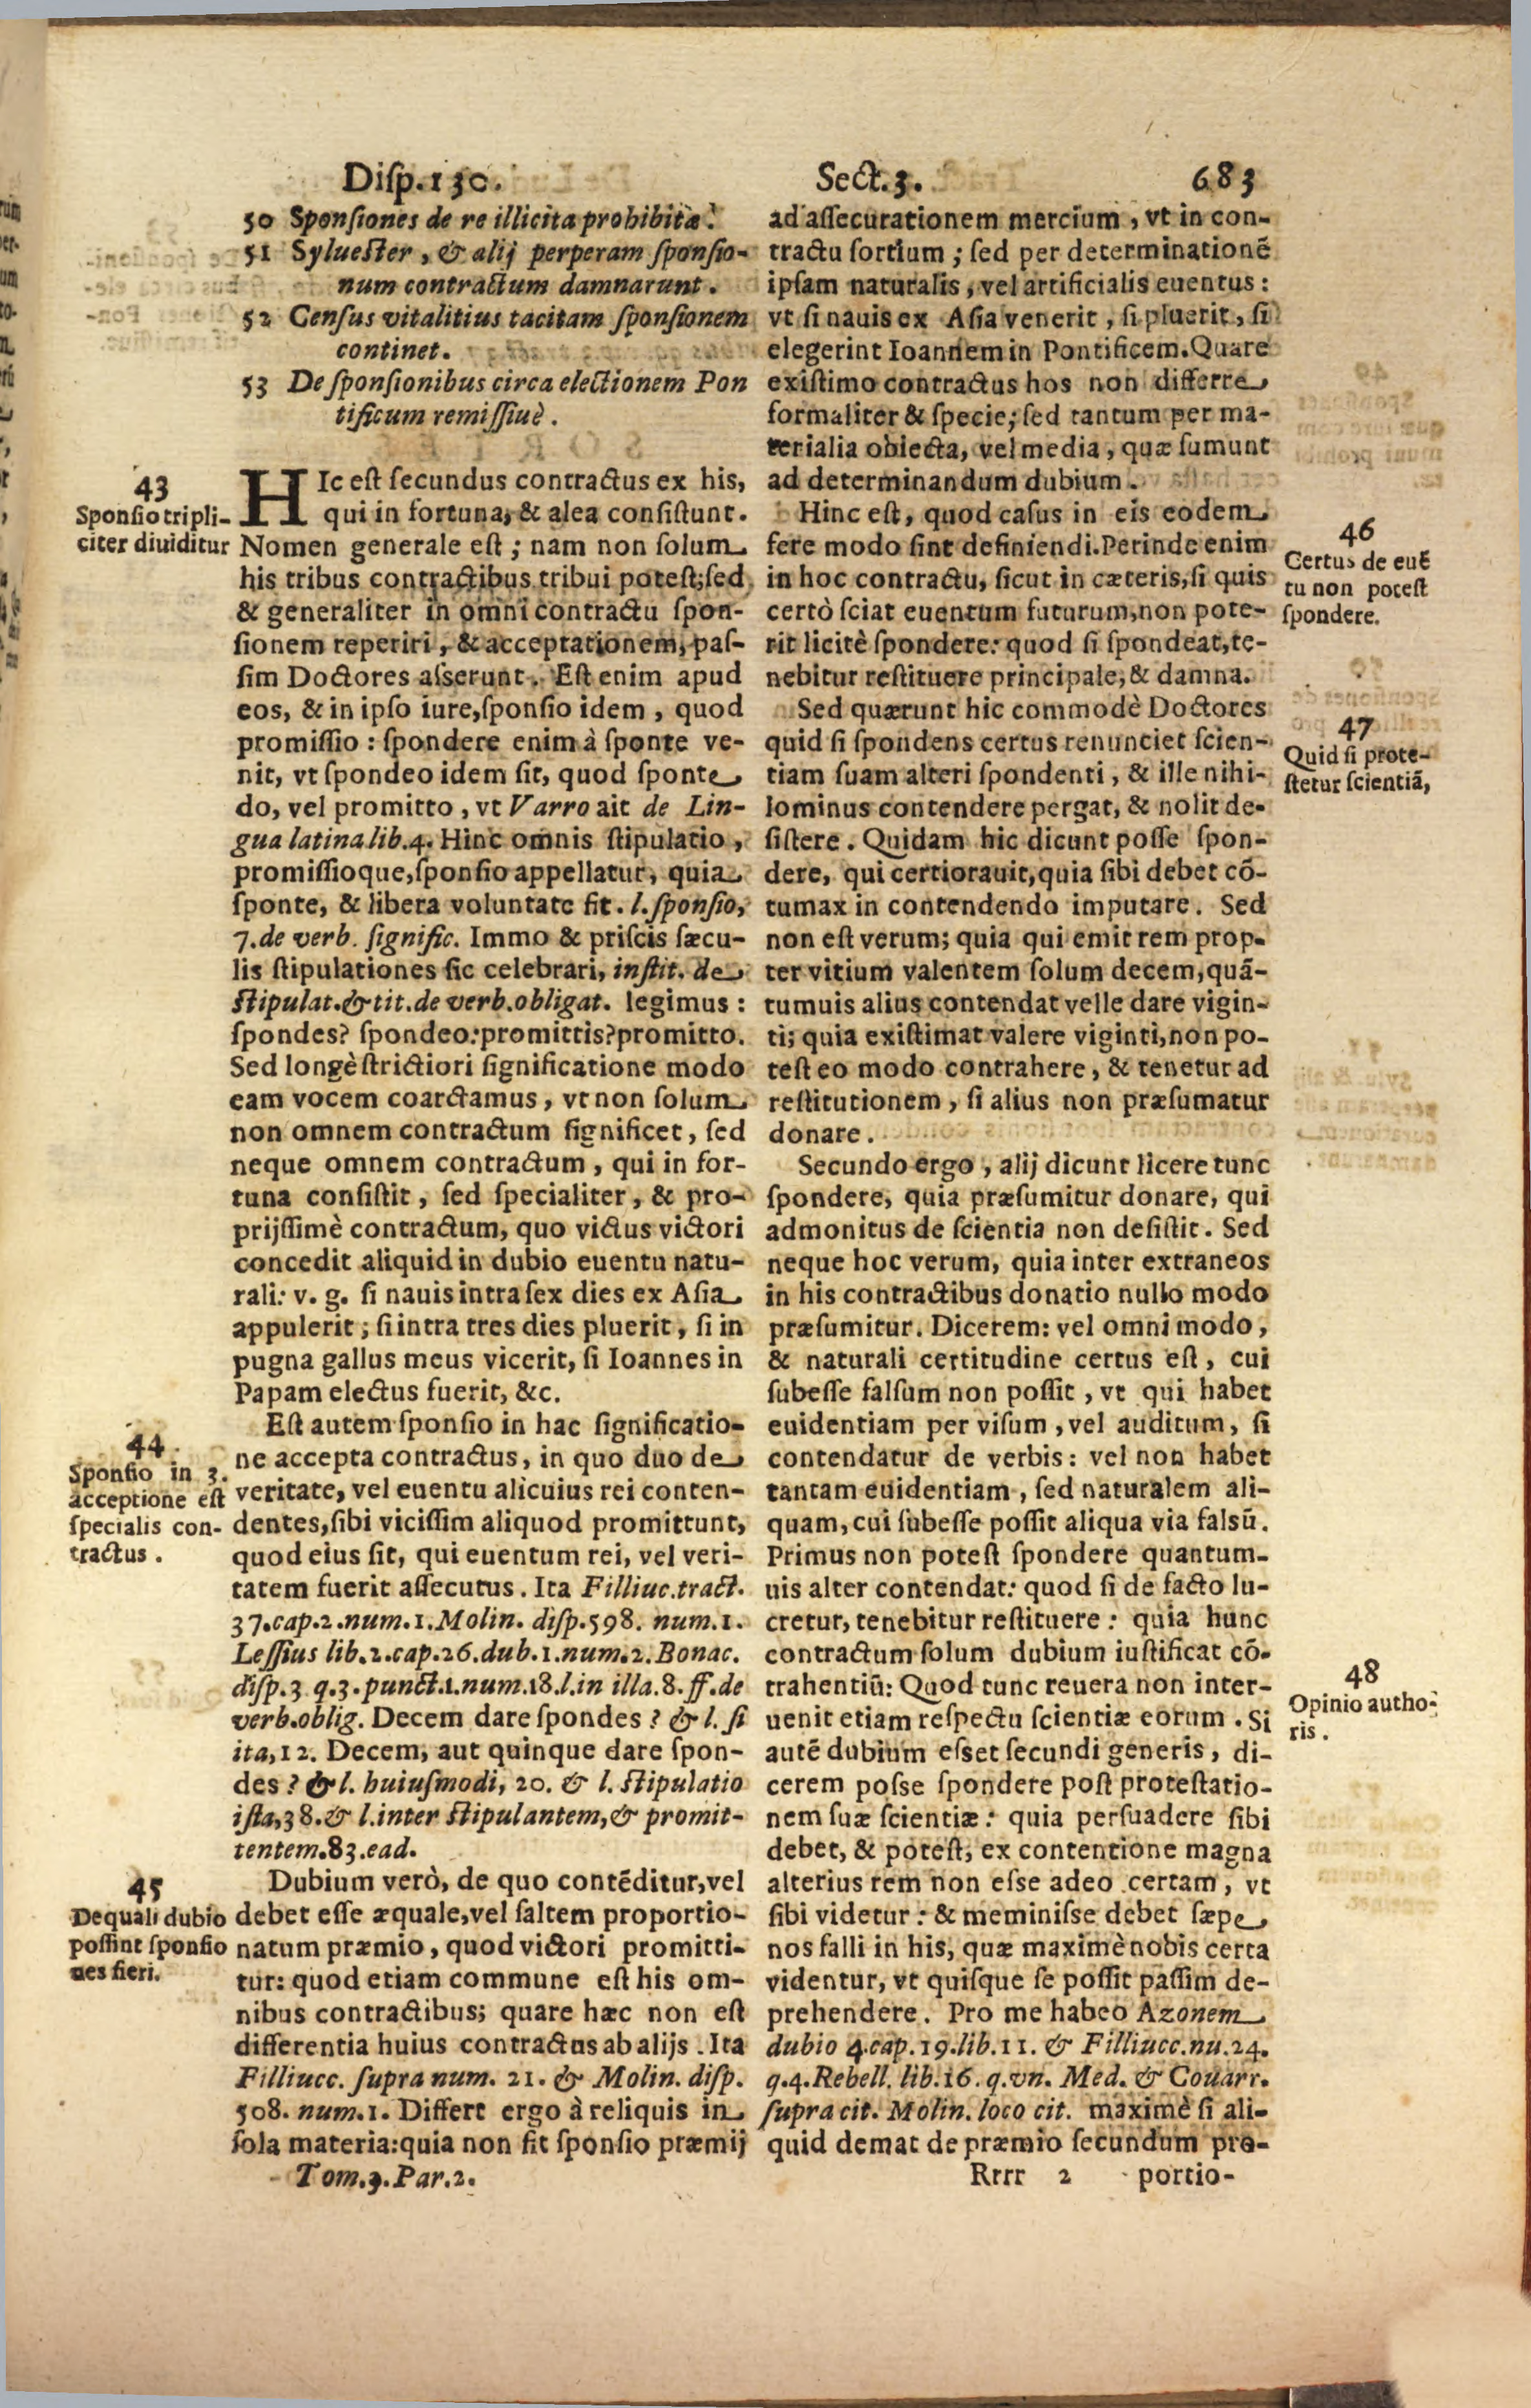 Disp.130. Sect.3. 683
50 Sponſiones de re illicita prohibitæ.
51 Sylueſter, & alij perperam ſponſio-
num contractum damnarunt.
52 Cenſus vitalitius tacitam ſponſionem
continet.
53 De ſponſionibus circa electionem Pon
tificum remiſſiuè.
43
Sponſio tripli-
citer diuiditur
HIc eſt ſecundus contractus ex his,
qui in fortuna, & alea conſiſtunt.
Nomen generale eſt; nam non ſolum
his tribus contractibus tribui poteſt; ſed
& generaliter in omni contractu ſpon-
ſionem reperiri, & acceptationem, paſ-
ſim Doctores aſserunt. Eſt enim apud
eos, & in ipſo iure, ſponſio idem, quod
promiſſio: ſpondere enim à ſponte ve-
nit, vt ſpondeo idem ſit, quod ſponte
do, vel promitto, vt Varro ait de Lin-
gua latina lib.4. Hinc omnis ſtipulatio,
promiſſioque, ſponſio appellatur, quia
ſponte, & libera voluntate fit. l.ſponſio,
7.de verb. ſignific. Immo & priſcis ſæcu-
lis ſtipulationes ſic celebrari, inſtit. de
ſtipulat.& tit.de verb.obligat. legimus:
ſpondes? ſpondeo: promittis? promitto.
Sed longè ſtrictiori ſignificatione modo
eam vocem coarctamus, vt non ſolum
non omnem contractum ſignificet, ſed
neque omnem contractum, qui in for-
tuna conſiſtit, ſed ſpecialiter, & pro-
prijſſimè contractum, quo victus victori
concedit aliquid in dubio euentu natu-
rali: v. g. ſi nauis intra ſex dies ex Aſia
appulerit; ſi intra tres dies pluerit, ſi in
pugna gallus meus vicerit, ſi Ioannes in
Papam electus fuerit, &c.
44
Sponſio in 3.
acceptione eſt
ſpecialis con-
tractus.
Eſt autem ſponſio in hac ſignificatio-
ne accepta contractus, in quo duo de
veritate, vel euentu alicuius rei conten-
dentes, ſibi viciſſim aliquod promittunt,
quod eius ſit, qui euentum rei, vel veri-
tatem fuerit aſſecutus. Ita Filliuc.tract.
37.cap.2.num.1.Molin. diſp.598. num.1.
Leſſius lib.2.cap.26.dub.1.num.2.Bonac.
diſp.3 q.3.punct.1.num.18.l.in illa.8.ff.de
verb.oblig. Decem dare ſpondes? & l. ſi
ita,12. Decem, aut quinque dare ſpon-
des? & l. huiuſmodi, 20. & l. ſtipulatio
iſta,38.& l.inter ſtipulantem,& promit-
tentem.83.ead.
45
De quali dubio
poſſint ſponſio
nes fieri.
Dubium verò, de quo contēditur, vel
debet eſſe æquale, vel ſaltem proportio-
natum præmio, quod victori promitti-
tur: quod etiam commune eſt his om-
nibus contractibus; quare hæc non eſt
differentia huius contractus ab alijs. Ita
Filliucc. ſupra num. 21. & Molin. diſp.
508. num.1. Differt ergo à reliquis in
ſola materia: quia non fit ſponſio præmij
Tom.3.Par.2.
ad aſſecurationem mercium, vt in con-
tractu ſortium; ſed per determinationē
ipſam naturalis, vel artificialis euentus:
vt ſi nauis ex Aſia venerit, ſi pluerit, ſi
elegerint Ioannem in Pontificem. Quare
exiſtimo contractus hos non differre
formaliter & ſpecie; ſed tantum per ma-
terialia obiecta, vel media, quæ ſumunt
ad determinandum dubium.
46
Certus de euē
tu non poteſt
ſpondere.
Hinc eſt, quod caſus in eis eodem
fere modo ſint definiendi. Perinde enim
in hoc contractu, ſicut in cæteris, ſi quis
certò ſciat euentum futurum, non pote-
rit licitè ſpondere: quod ſi ſpondeat, te-
nebitur reſtituere principale, & damna.
47
Quid ſi prote-
ſtetur ſcientiā,
Sed quærunt hic commodè Doctores
quid ſi ſpondens certus renunciet ſcien-
tiam ſuam alteri ſpondenti, & ille nihi-
lominus contendere pergat, & nolit de-
ſiſtere. Quidam hic dicunt poſſe ſpon-
dere, qui certiorauit, quia ſibi debet cō-
tumax in contendendo imputare. Sed
non eſt verum; quia qui emit rem prop-
ter vitium valentem ſolum decem, quā-
tumuis alius contendat velle dare vigin-
ti; quia exiſtimat valere viginti, non po-
teſt eo modo contrahere, & tenetur ad
reſtitutionem, ſi alius non præſumatur
donare.
Secundo ergo, alij dicunt licere tunc
ſpondere, quia præſumitur donare, qui
admonitus de ſcientia non deſiſtit. Sed
neque hoc verum, quia inter extraneos
in his contractibus donatio nullo modo
præſumitur. Dicerem: vel omni modo,
& naturali certitudine certus eſt, cui
ſubeſſe falſum non poſſit, vt qui habet
euidentiam per viſum, vel auditum, ſi
contendatur de verbis: vel non habet
tantam euidentiam, ſed naturalem ali-
quam, cui ſubeſſe poſſit aliqua via falsū.
Primus non poteſt ſpondere quantum-
uis alter contendat: quod ſi de facto lu-
cretur, tenebitur reſtituere: quia hunc
contractum ſolum dubium iuſtificat cō-
trahentiū: Quod tunc reuera non inter-
uenit etiam reſpectu ſcientiæ eorum. Si
autē dubium eſset ſecundi generis, di-
cerem poſse ſpondere poſt proteſtatio-
nem ſuæ ſcientiæ: quia perſuadere ſibi
debet, & poteſt, ex contentione magna
alterius rem non eſse adeo certam, vt
ſibi videtur: & meminiſse debet ſæpe
nos falli in his, quæ maximè nobis certa
videntur, vt quiſque ſe poſſit paſſim de-
prehendere. Pro me habeo Azonem
dubio 4.cap.19.lib.11. & Filliucc.nu.24.
q.4.Rebell. lib.16. q.vn. Med. & Couarr.
ſupra cit. Molin. loco cit. maximè ſi ali-
quid demat de præmio ſecundum pro-
48
Opinio autho-
ris.
Rrrr 2 portio-